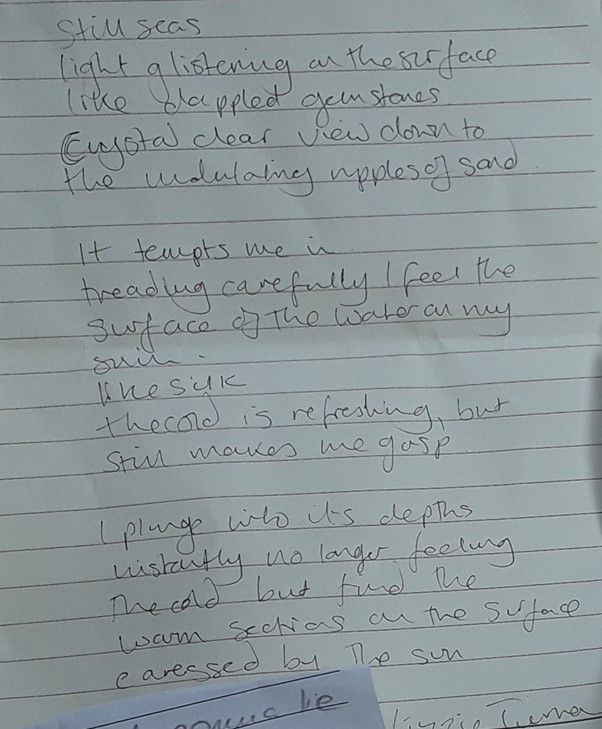 Still seas
light glistening on the surface
like dappled gemstones
Crystal clear view down to
the undulating ripples of sand
It tempts me in
treading carefully I feel the
surface of the water on my
skin.
like silk
the cold is refreshing, but
still makes me gasp
I plunge into its depths
instantly no longer feeling
The cold but find the
warm sections on the surface
caressed by The sun
lie